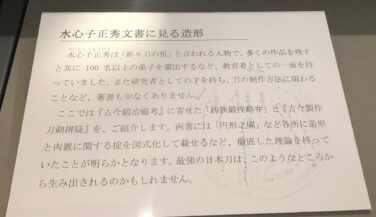 水心子正秀文書に見る造形
すいしんしまさひで
水心子正秀は「新々刀の祖」と言われる人物で、多くの作品を残す
と共に 100 名以上の弟子を輩出するなど、教育者としての一面を持
っていました。また研究者としての才を持ち、刀の制作方法に関わる
ことなど、著書も少なくありません。
ここでは『古今鍛冶備考』に寄せた「鋳鉄鍛挫略弁」と『古今製作
刀剣辨疑』を、ご紹介します。両書には「円形之圖」など各所に造形
と肉置に関する掟を図式化して載せるなど、徹底した理論を持って
いたことが明らかとなります。最強の日本刀は、このようなところか
ら生み出されるのかもしれません。